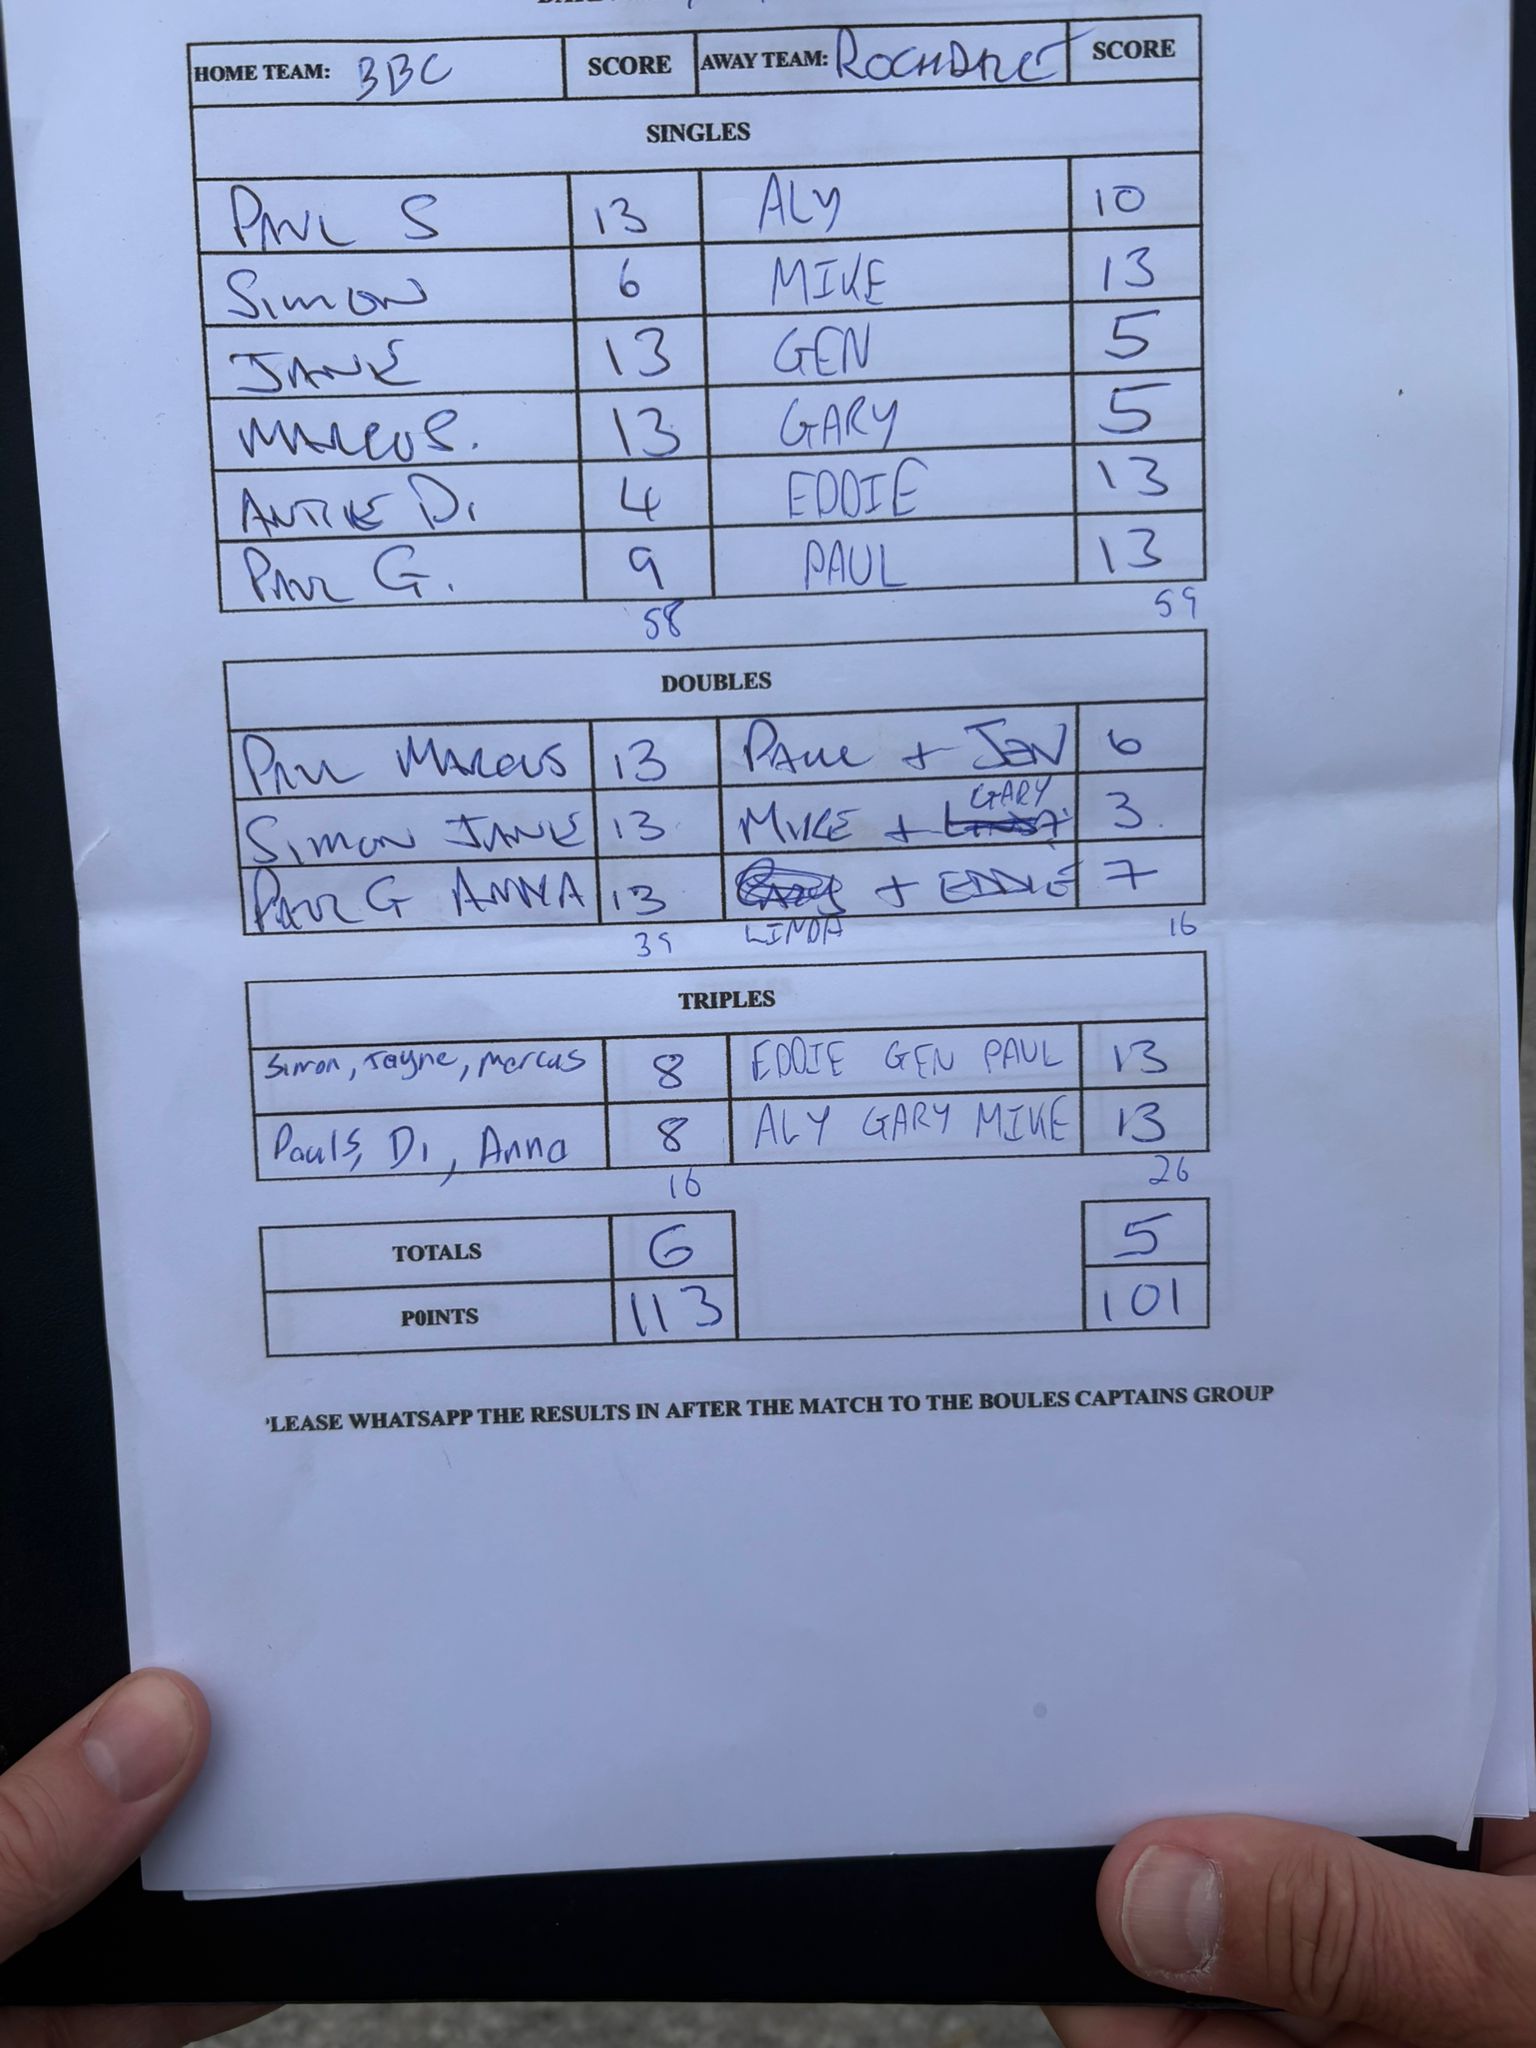 HOME TEAM: BBC SCORE AWAY TEAM: ROCHDALE SCORE
SINGLES
PAUL S 13 ALY 10
SIMON 6 MIKE 13
JANE 13 GEN 5
MARCUS. 13 GARY 5
DI. 4 EDDIE 13
PAUL G. 9 PAUL 13
58 59
DOUBLES
PAUL MARCUS 13 PAUL + JEN 6
GARY
SIMON JANE 13 MIKE + 3
PAUL G ANNA 13 + EDDIE 7
39 LINDA 16
TRIPLES
Simon, Jayne, Marcus 8 EDDIE GEN PAUL 13
Paul S, Di, Anna 8 ALY GARY MIKE 13
16 26
TOTALS 6 5
P0INTS 113 101
'LEASE WHATSAPP THE RESULTS IN AFTER THE MATCH TO THE BOULES CAPTAINS GROUP